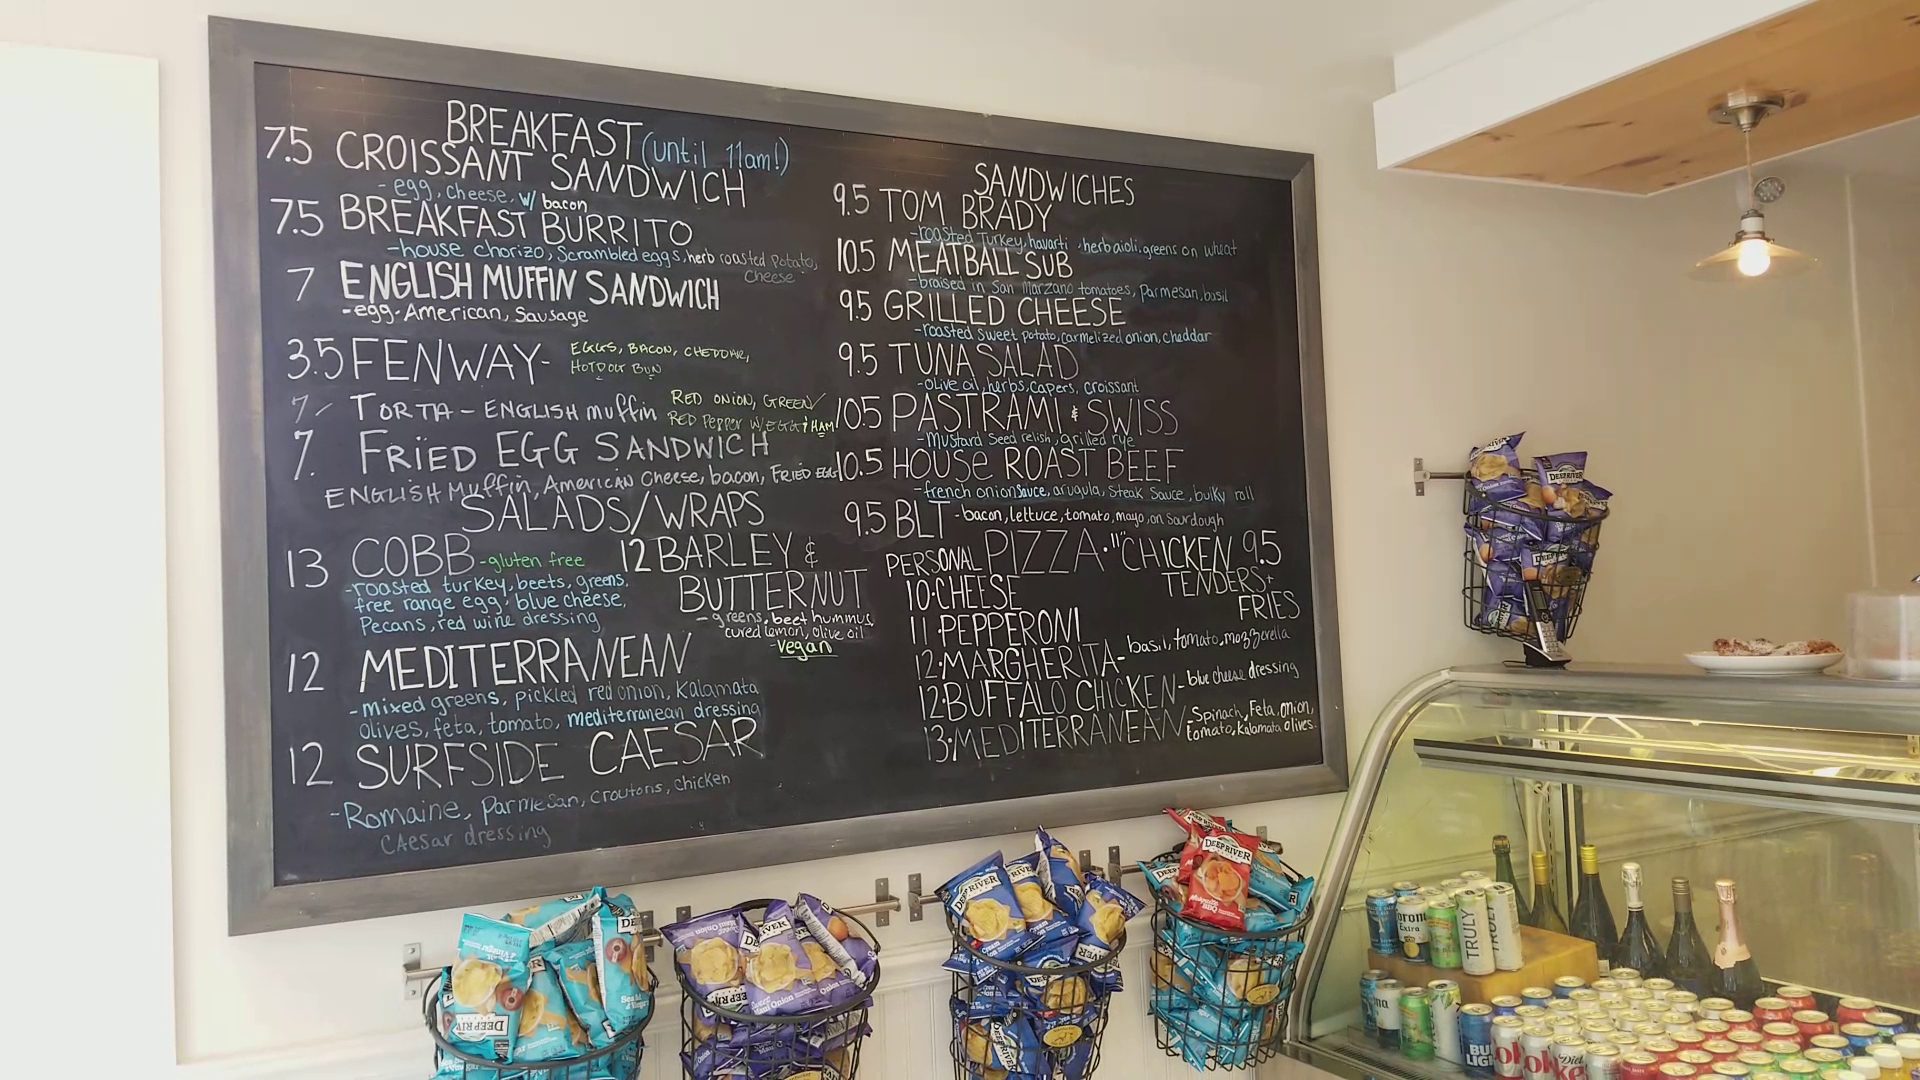 BREAKFAST (until 11am!)
7.5 CROISSANT SANDWICH
- egg, cheese, w/ bacon
7.5 BREAKFAST BURRITO
- house chorizo, scrambled eggs, herb roasted potato,
cheese
7 ENGLISH MUFFIN SANDWICH
- egg - American, Sausage
3.5 FENWAY - EGGS, BACON, CHEDDAR,
HOTDOG BUN
7 TORTA - ENGLISH muffin RED ONION, GREEN/
RED PEPPER W/ EGG & HAM
7. FRIED EGG SANDWICH
ENGLISH Muffin, American Cheese, bacon, FRIED EGG
SALADS/WRAPS
13 COBB - gluten free
- roasted turkey, beets, greens,
free range egg, blue cheese,
Pecans, red wine dressing
12 BARLEY &
BUTTERNUT
- greens, beet hummus,
cured lemon, olive oil
- vegan
12 MEDITERRANEAN
- mixed greens, pickled red onion, kalamata
olives, feta, tomato, mediterranean dressing
12 SURFSIDE CAESAR
- Romaine, parmesan, croutons, chicken
CAesar dressing
SANDWICHES
9.5 TOM BRADY
- roasted Turkey, havarti, herb aioli, greens on wheat
10.5 MEATBALL SUB
- braised in San Marzano tomatoes, Parmesan, basil
9.5 GRILLED CHEESE
- roasted sweet potato, carmelized onion, cheddar
9.5 TUNA SALAD
- olive oil, herbs, capers, croissant
10.5 PASTRAMI & SWISS
- Mustard Seed relish, grilled rye
10.5 HOUSE ROAST BEEF
- french onion sauce, arugula, Steak Sauce, bulky roll
9.5 BLT - bacon, lettuce, tomato, mayo, on Sourdough
PERSONAL PIZZA
10 · CHEESE
11 · PEPPERONI
12 · MARGHERITA - basil, tomato, mozzarella
12 · BUFFALO CHICKEN - blue cheese dressing
13 · MEDITERRANEAN - Spinach, Feta, onion,
tomato, Kalamata olives.
CHICKEN 9.5
TENDERS +
FRIES
DEEP RIVER
DEEP RIVER
DEEP RIVER
DEEP RIVER
DEEP RIVER
Corona
Extra
TRULY
TRULY
BUD
LIGHT
Diet
Coke